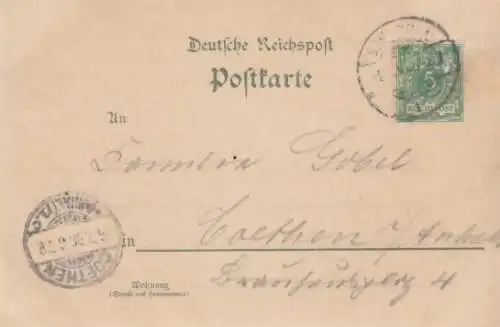 Deutsche Reichspost
Postkarte
5
An
Familie Göbel
in Coethen i/Anhalt
COETHEN
Wohnung
(Straße und Hausnummer)
4